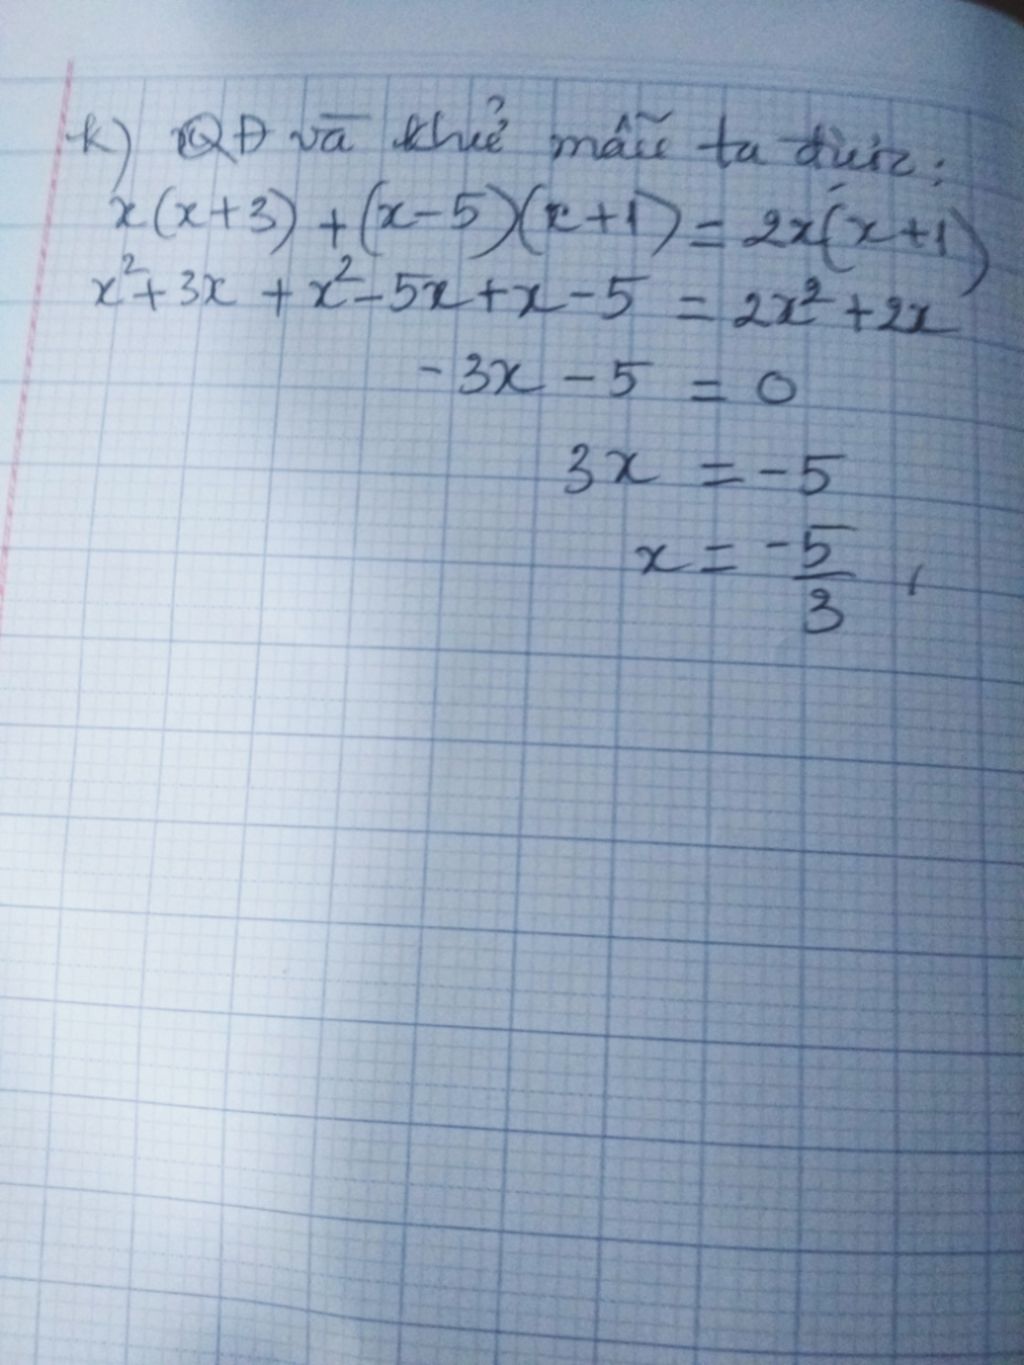 k) QĐ và khử mẫu ta được:
x(x+3) + (x-5)(x+1) = 2x(x+1)
x² + 3x + x² - 5x + x - 5 = 2x² + 2x
-3x - 5 = 0
3x = -5
x = -5/3,